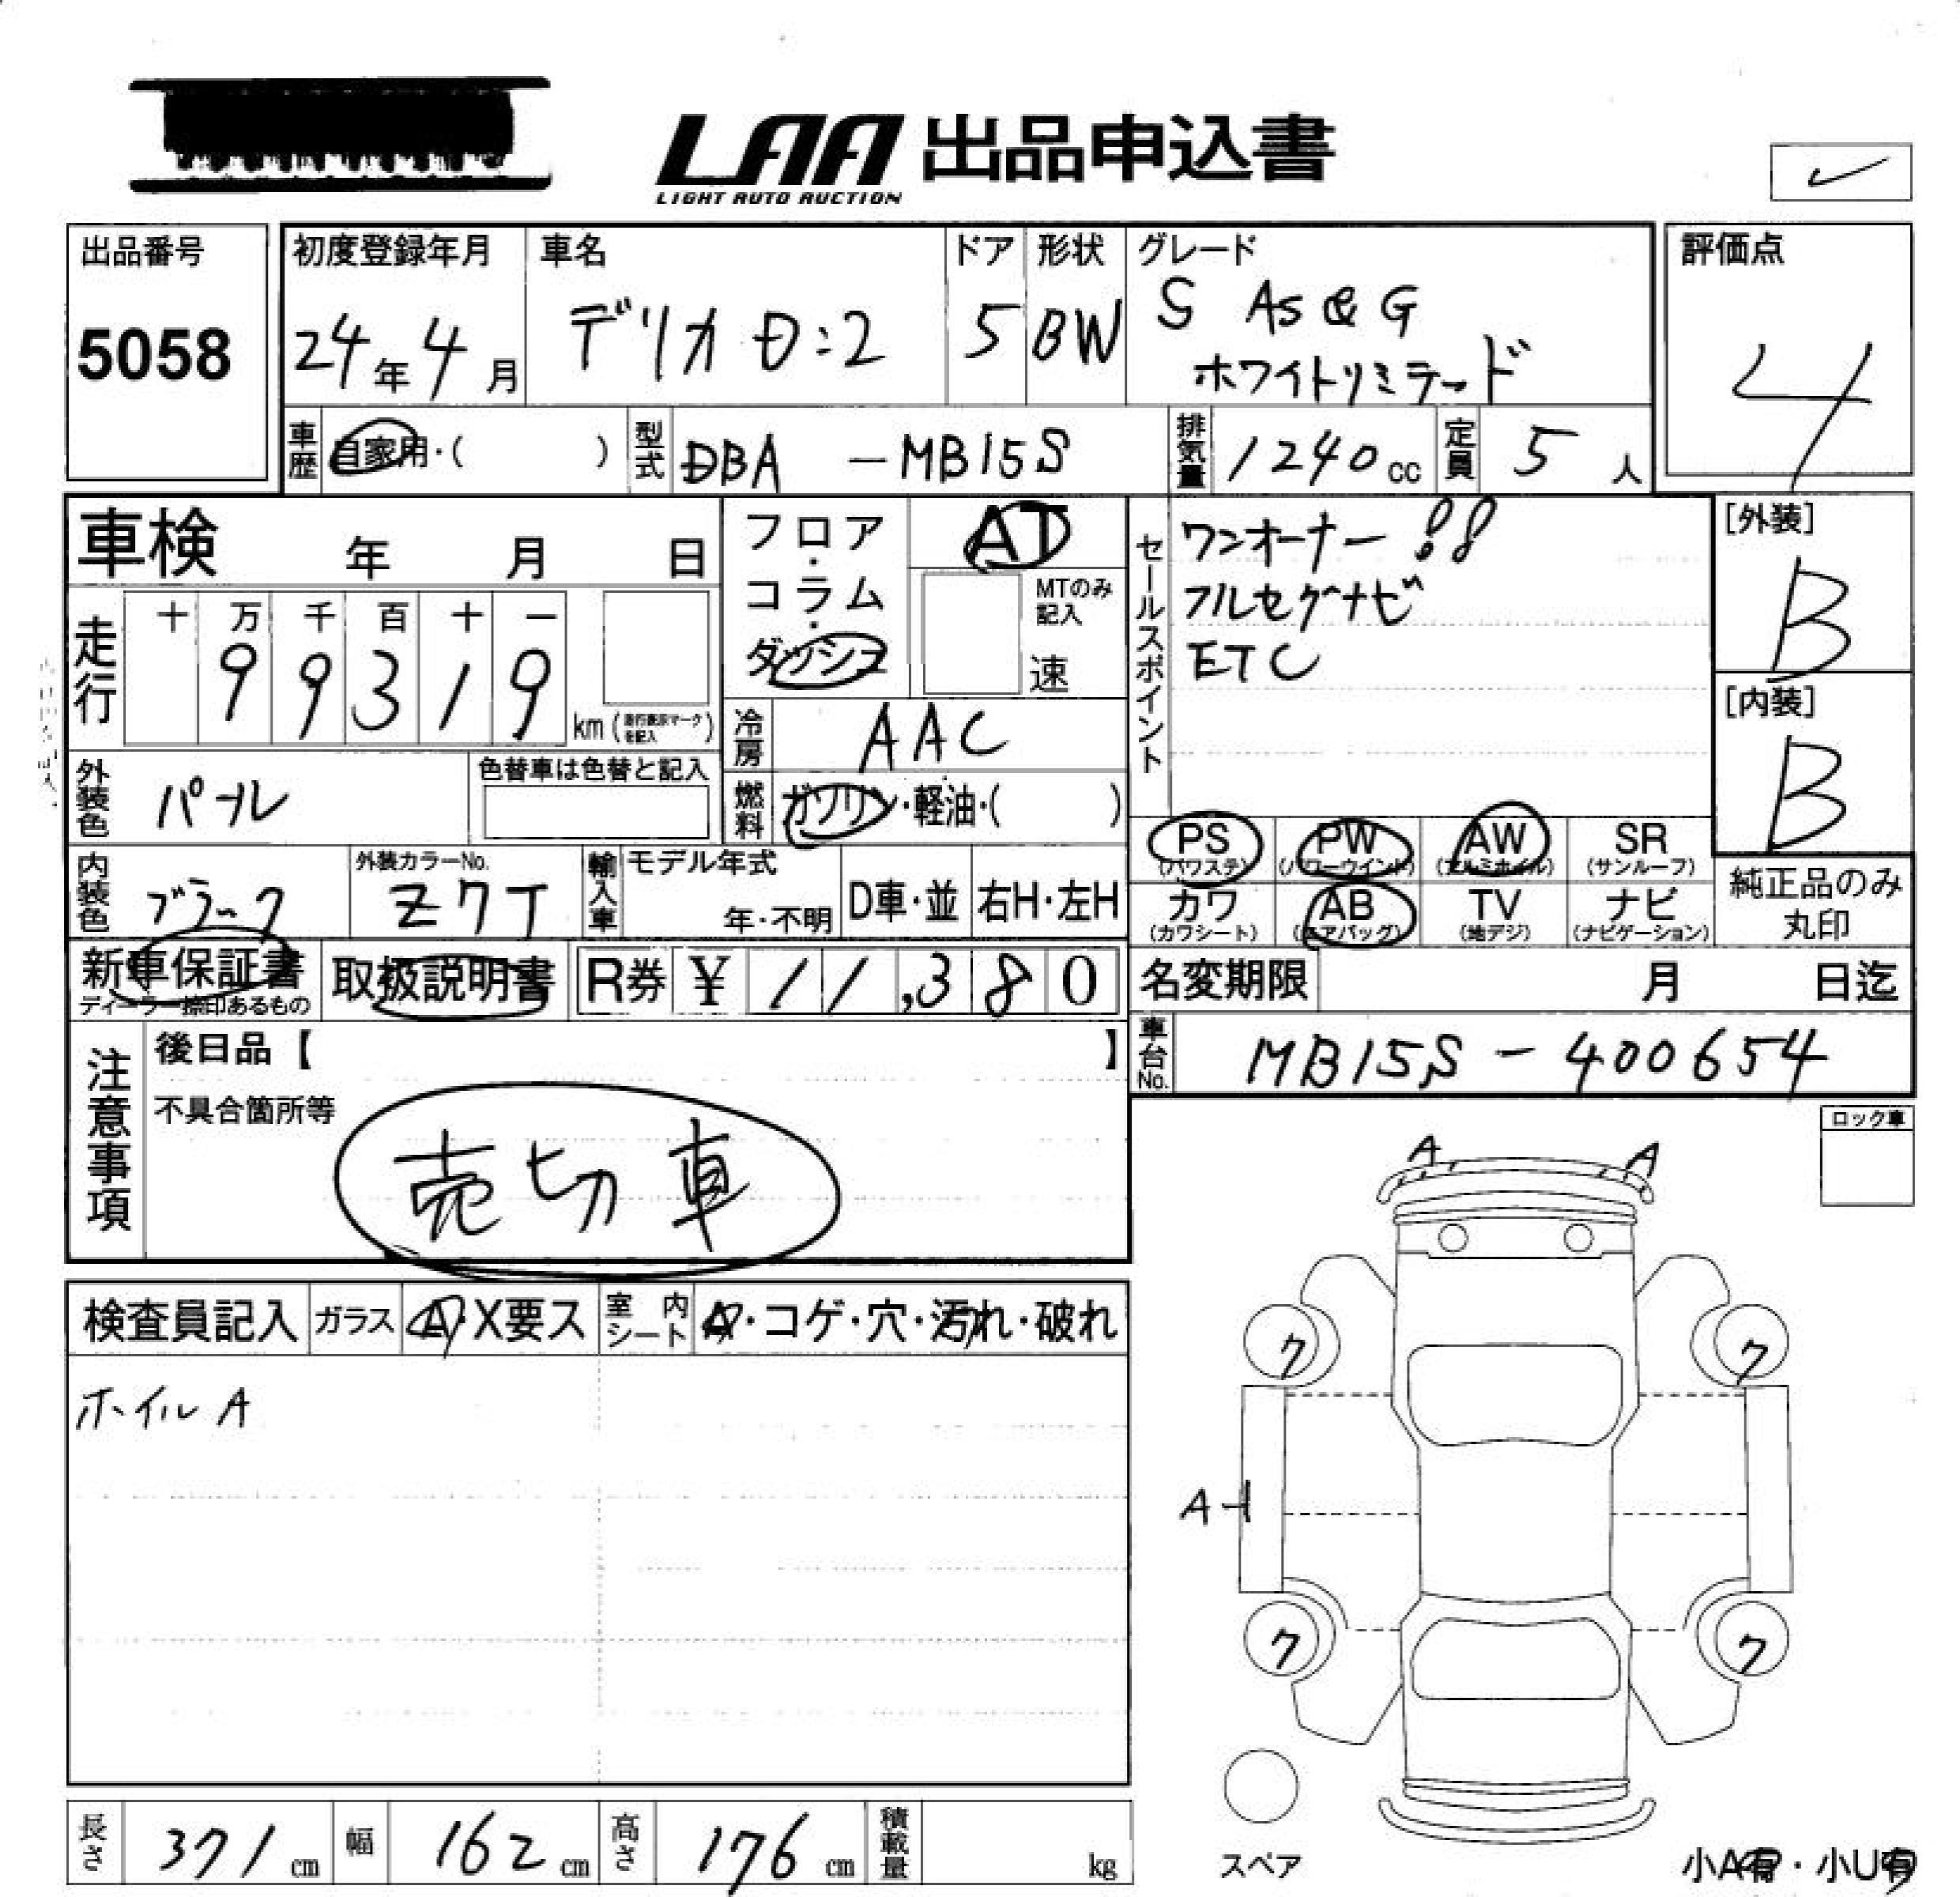 LAA 出品申込書
LIGHT AUTO AUCTION
出品番号
5058
初度登録年月
24年4月
車名
デリカ D:2
ドア
5
形状
BW
グレード
S AS&G
ホワイトリミテッド
評価点
4
車歴
自家用・( )
型式
DBA -MB15S
排気量
1240cc
定員
5人
車検 年 月 日
走行
十 万 千 百 十 一
99319
km(走行表示マークを記入)
外装色
パール
色替車は色替と記入
内装色
ブラック
外装カラーNo.
Z7T
輸入車
モデル年式
年・不明
D車・並
右H・左H
フロア・コラム・ダッシュ
AT
MTのみ記入
速
冷房
AAC
燃料
ガソリン・軽油・( )
セールスポイント
ワンオーナー!!
フルセグナビ
ETC
[外装]
B
[内装]
B
PS (パワステ)
PW (パワーウインド)
AW (アルミホイル)
SR (サンルーフ)
カワ (カワシート)
AB (エアバッグ)
TV (地デジ)
ナビ (ナビゲーション)
純正品のみ丸印
新車保証書
ディーラー捺印あるもの
取扱説明書
R券 ¥ 11,380
名変期限 月 日迄
車台No.
MB15S-400654
注意事項
後日品【 】
不具合箇所等
売切車
ロック車
検査員記入
ガラス
A・X要ス
室内シート
ク・コゲ・穴・汚れ・破れ
ホイル A
A
A
ク
ク
A
ク
ク
長さ
371cm
幅
162cm
高さ
176cm
積載量
kg
スペア
小A有・小U有